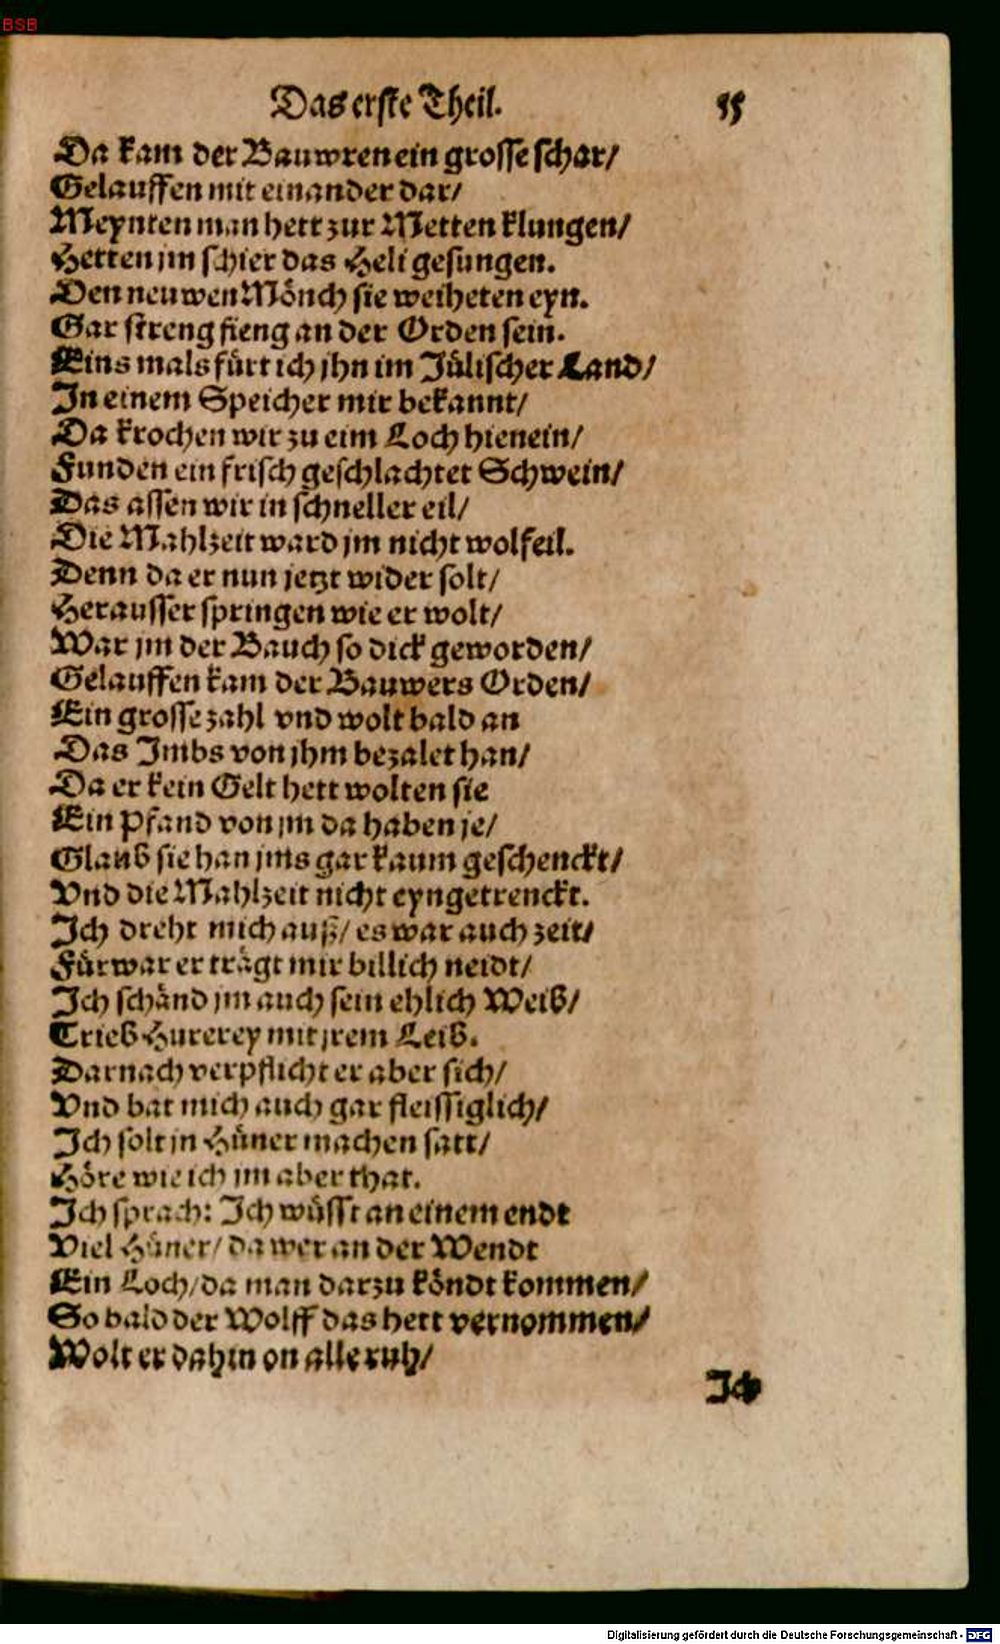 BSB
Das erste Theil. 55
Da kam der Bauwren ein grosse schar/
Gelauffen mit einander dar/
Meynten man hett zur Metten klungen/
Hetten jm schier das Heli gesungen.
Den neuwen Mönch sie weiheten eyn.
Gar streng fieng an der Orden sein.
Eins mals fürt ich jhn im Jülischer Land/
In einem Speicher mir bekannt/
Da krochen wir zu eim Loch hienein/
Funden ein frisch geschlachtet Schwein/
Das assen wir in schneller eil/
Die Mahlzeit ward jm nicht wolfeil.
Denn da er nun jetzt wider solt/
Herausser springen wie er wolt/
War jm der Bauch so dick geworden/
Gelauffen kam der Bauwers Orden/
Ein grosse zahl vnd wolt bald an
Das Imbs von jhm bezalet han/
Da er kein Gelt hett wolten sie
Ein Pfand von jm da haben je/
Glaub sie han jms gar kaum geschenckt/
Vnd die Mahlzeit nicht eyngetrenckt.
Ich dreht mich auß/ es war auch zeit/
Fürwar er trägt mir billich neidt/
Ich schänd jm auch sein ehlich Weib/
Trieb Hurerey mit jrem Leib.
Darnach verpflicht er aber sich/
Vnd bat mich auch gar fleissiglich/
Ich solt jn Hüner machen satt/
Höre wie ich jm aber that.
Ich sprach: Ich wüsst an einem endt
Viel Hüner/ da wer an der Wendt
Ein Loch/ da man darzu köndt kommen/
So bald der Wolff das hett vernommen/
Wolt er dahin on alle ruh/
Ich
Digitalisierung gefördert durch die Deutsche Forschungsgemeinschaft - DFG